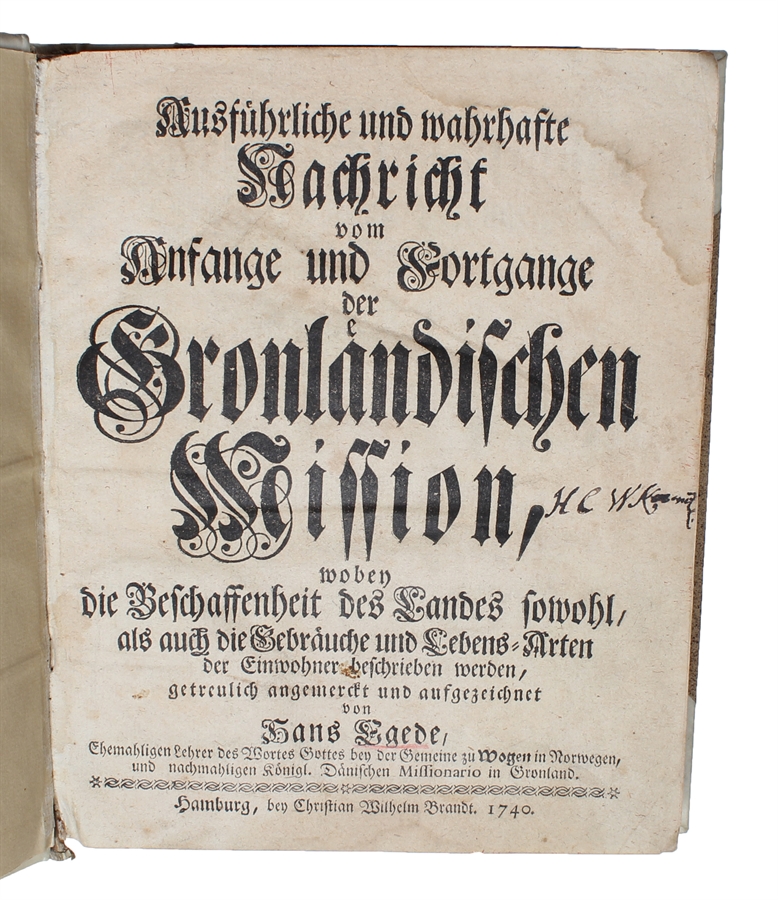 Ausführliche und wahrhafte
Nachricht
vom
Anfange und Fortgange
der
Gronlaͤndischen
Mission,
H C W
wobey
die Beschaffenheit des Landes sowohl/
als auch die Gebräuche und Lebens-Arten
der Einwohner beschrieben werden,
getreulich angemerckt und aufgezeichnet
von
Hans Egede/
Ehemahligen Lehrer des Wortes Gottes bey der Gemeine zu Wogen in Norwegen,
und nachmahligen Königl. Dänischen Missionario in Gronland.
Hamburg, bey Christian Wilhelm Brandt. 1740.